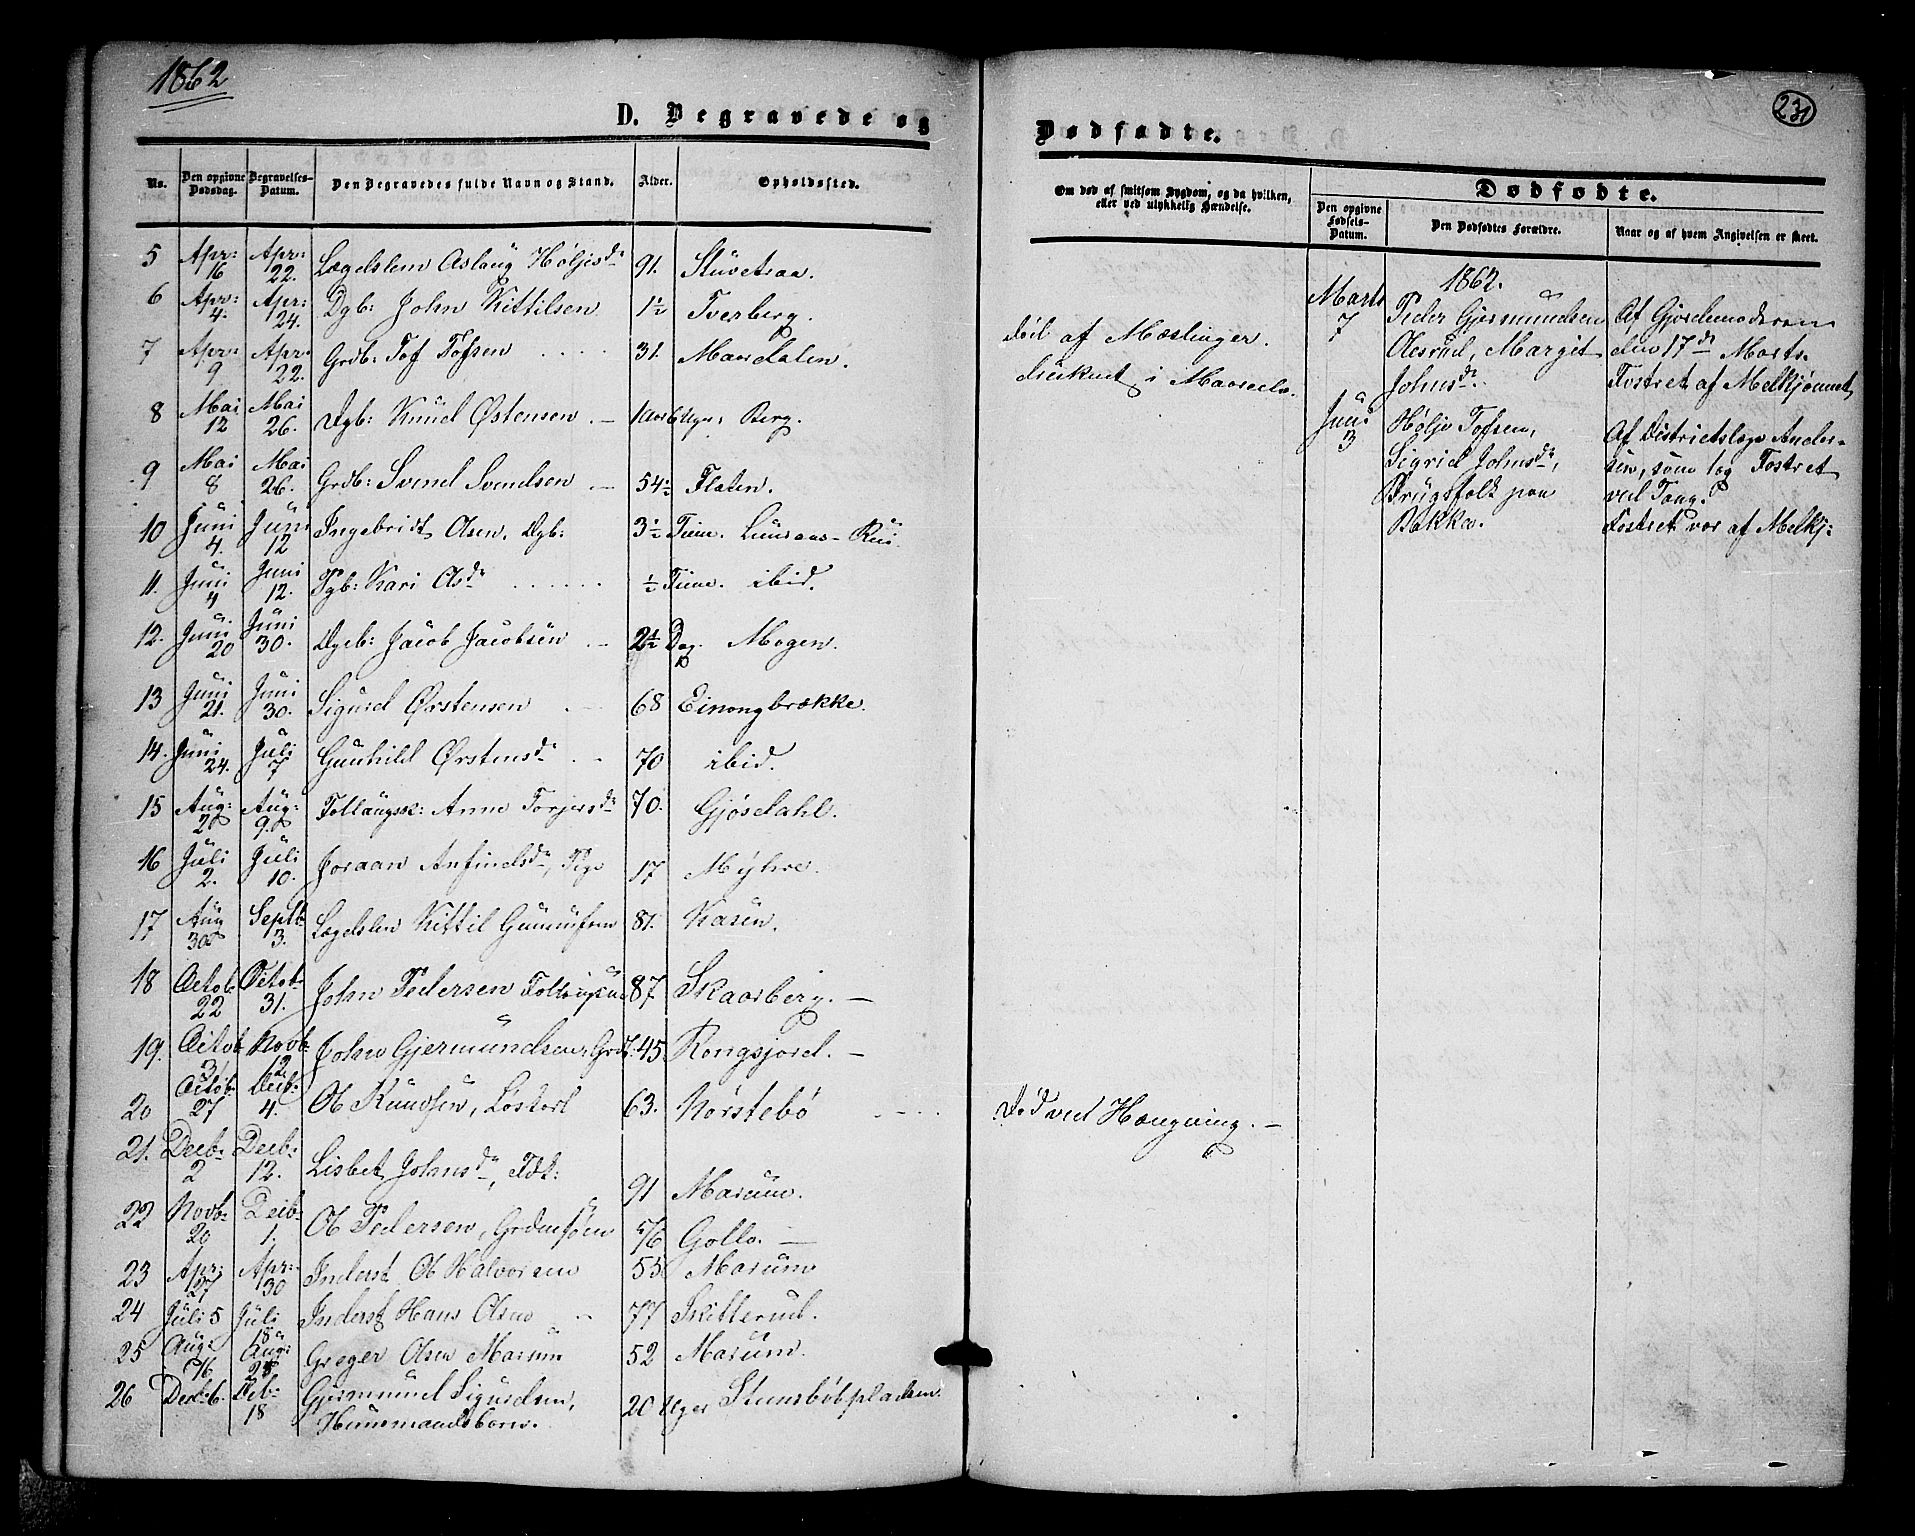 1862
231
D. Begravede og Dødfødte.
No. Den opgivne Dødsdag. Begravelses-Datum. Den Begravedes fulde Navn og Stand. Alder. Opholdssted.
Om død af smitsom Sygdom, og da hvilken, eller ved ulykkelig Hændelse.
Dødfødte.
Den opgivne Fødsels-Datum. Den Dødfødtes Forældre. Naar og af hvem Angivelsen er skeet.
5 Apr: 16 Apr: 22. Lægdslem Aslaug Høljesdr 91. Stuvetraa.
6 Apr: 4. Apr: 24. Dgb: John Kittilsen 1½ Tverberg. død af Mæslinger.
7 Apr: 9 Apr: 22. Grdb: Tof Tofsen 31. Maardalen. druknet i
8 Mai 12 Mai 26. Dgb: Knud Østensen 6 Uger Berg.
9 Mai 8 Mai 26. Grdb: Svend Svendsen 54½ Flaten.
10 Juni 4. Juni 12 Ingebridt Olsen, Dgb: 3½ Time.
11. Juni 4 Juni 12. Pgb: Kari Olsdr ½ Time. ibid.
12. Juni 20 Juni 30. Jacob Jacobsen 2½ Dag. Mogen.
13 Juni 21. Juni 30. Sigurd Ørstensen 68 Einongbrække.
14. Juni 24. Juli 7 Gunhild Ørstensdr 70 ibid.
15 Aug: 2 Aug: 9. Anne Torjersdr 70. Gjøsdahl.
16 Juli 2. Juli 10. Joraan Anfindsdr, Pige 17 Myhre.
17 Aug 30 Septb 3. Lægdslem Kittil Gunnufsen 81. Kasin.
18 Octob. 22 Octob. 31. John Pedersen 87 Skaarberg.
19. Octob 31 Novb 12. John Gjermundsen, Grdb: 45 Rongsjord.
20 Octob: 27 Decb: 4. Ol Knudsen, 63. Nørstebø Død ved Hængning.
21. Decb: 2 Decb: 12. Lisbet Johnsdr, 91 Marum.
22 Novb: 20 Decb: 1. Ol Pedersen, 56 Gollo.
23 Apr: 27 Apr: 30 Inderst Ol Halvorsen 55 Marum
24 Juli 5 Juli 18 Inderst Hans Olsen 77 Skitterud.
25 Aug: 16 Aug: 25 Greger Olsen Marum 52 Marum.
26 Decb: 6. Decb: 18 Gjermund Sigurdsen, Huusmandsbarn. 20 Uger
1862.
Marts 7 Peder Gjermundsen Olesrud, Margit Johnsdr. Af Gjordemoderen den 17de Marts. Fostret af Melkjønnet
Juni 3 Hølje Tofsen, Sigrid Johnsdr, Brugsfolk paa Bakka. Af Districtslæge Andersen, som tog Fostret ved Tang. Fostret var af Melkj: